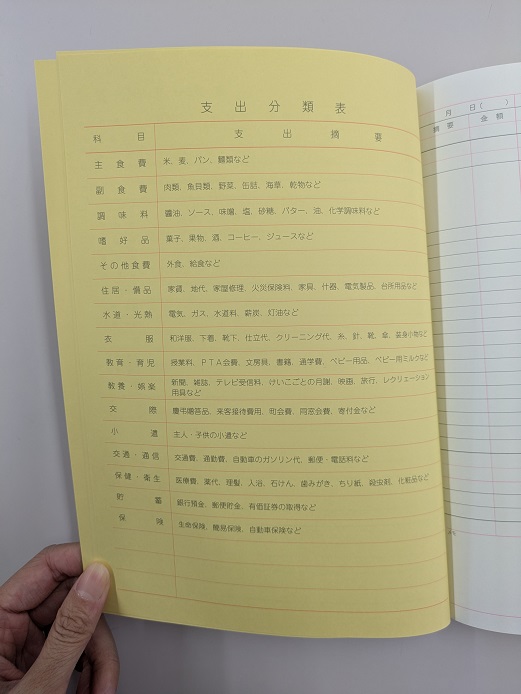 支出分類表
科目 支出摘要
主食費 米、麦、パン、麺類など
副食費 肉類、魚貝類、野菜、缶詰、海草、乾物など
調味料 醤油、ソース、味噌、塩、砂糖、バター、油、化学調味料など
嗜好品 菓子、果物、酒、コーヒー、ジュースなど
その他食費 外食、給食など
住居・備品 家賃、地代、家屋修理、火災保険料、家具、什器、電気製品、台所用品など
水道・光熱 電気、ガス、水道料、薪炭、灯油など
衣服 和洋服、下着、靴下、仕立代、クリーニング代、糸、針、靴、傘、装身小物など
教育・育児 授業料、PTA会費、文房具、書籍、通学費、ベビー用品、ベビー用ミルクなど
教養・娯楽 新聞、雑誌、テレビ受信料、けいこごとの月謝、映画、旅行、レクリェーション
用具など
交際 慶弔贈答品、来客接待費用、町会費、同窓会費、寄付金など
小遣 主人・子供の小遣など
交通・通信 交通費、通勤費、自動車のガソリン代、郵便・電話料など
保健・衛生 医療費、薬代、理髪、入浴、石けん、歯みがき、ちり紙、殺虫剤、化粧品など
貯蓄 銀行預金、郵便貯金、有価証券の取得など
保険 生命保険、簡易保険、自動車保険など
月 日( )
摘要 金額